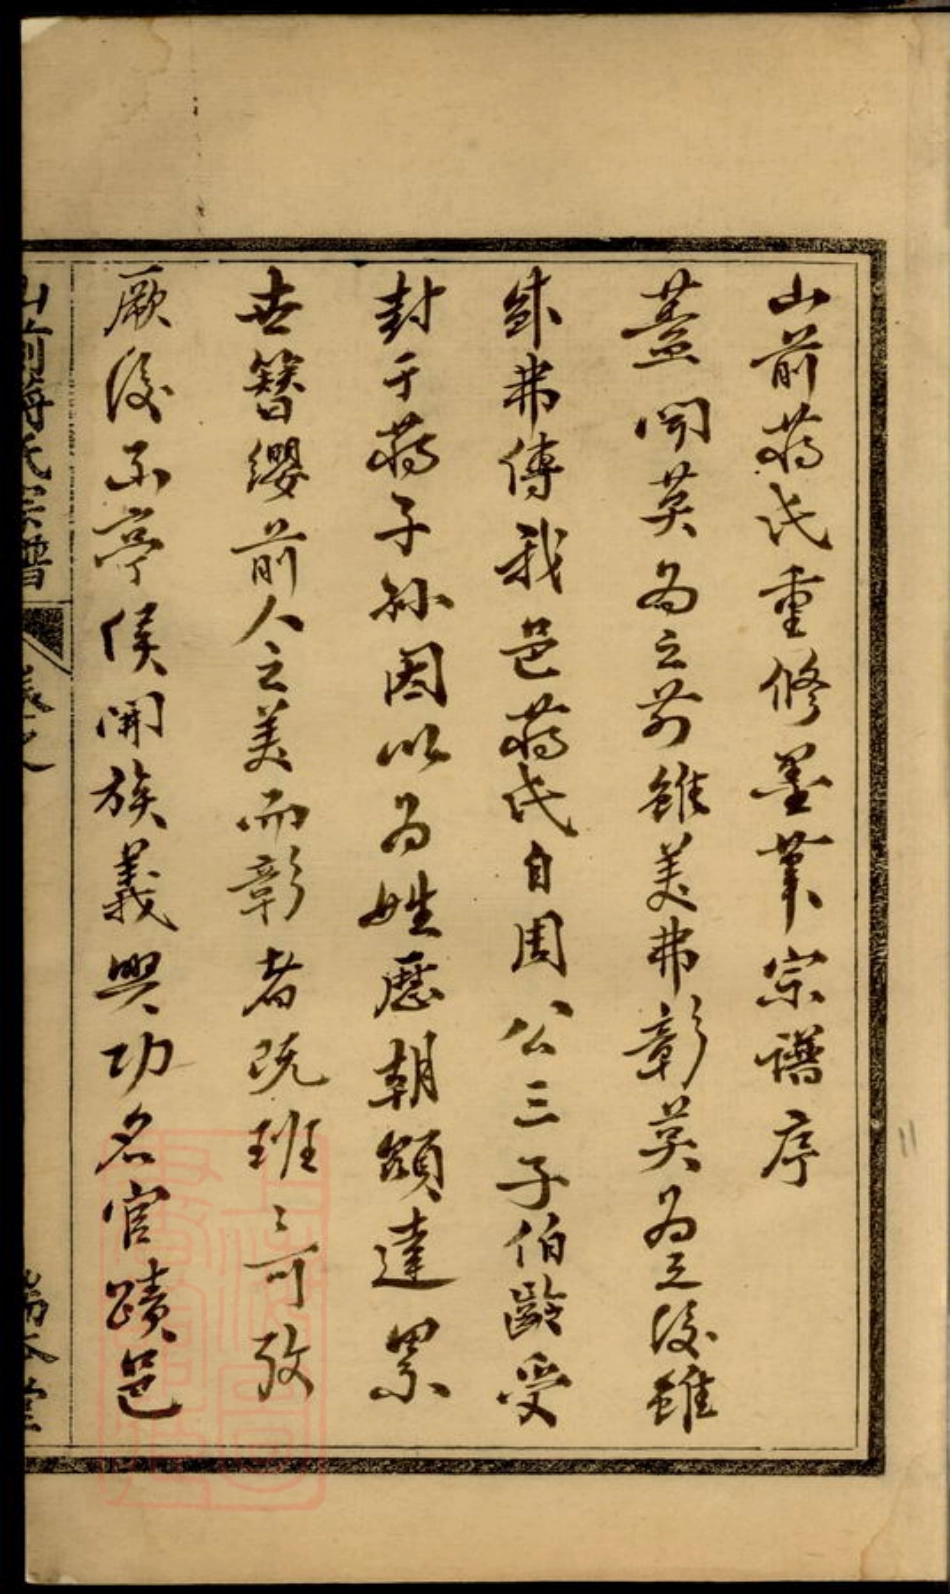 山前蔣氏重修墨葉宗譜序
蓋聞莫為之前雖美弗彰莫為之後雖
絲弗傳我邑蔣氏自周公三子伯齡受
封于蔣子孫因以為姓歷朝顯達累
世簪纓前人之美而彰者既班〻可攷
厥後函亭侯開族義興功名官蹟邑
山前蔣氏宗譜